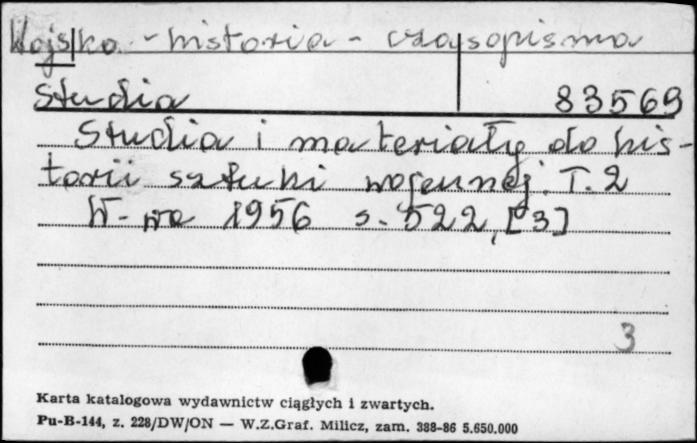 Wojsko - historia - czasopisma
Studia 83569
Studia i materiały do his-
torii sztuki wojennej. T. 2
W-wa 1956 s. 522, [3]
3
Karta katalogowa wydawnictw ciągłych i zwartych.
Pu-B-144, z. 228/DW/ON — W.Z.Graf. Milicz, zam. 388-86 5.650.000